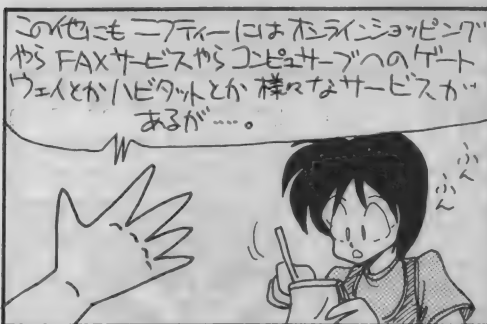 この他にも ニフティーには オンラインショッピング
やら FAXサービスやら コンピュサーブへのゲート
ウェイとか ハビタットとか 様々なサービスが
あるが……。
ふん
ふん